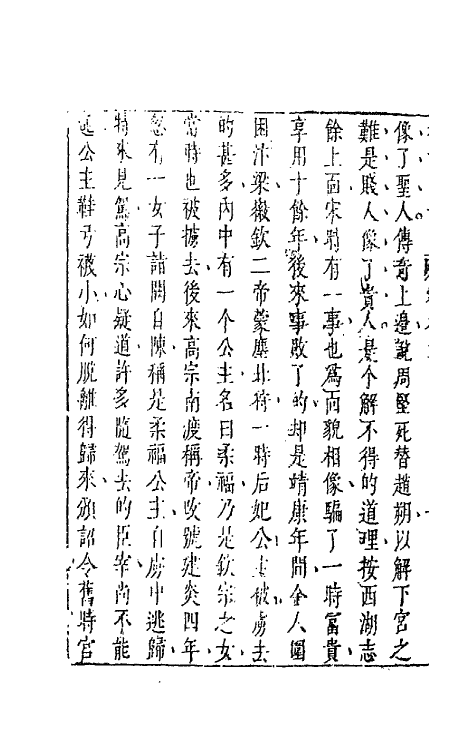 像了聖人傳奇上邊說周堅死替趙朔以解下宮之
難是賤人像了貴人是個解不得的道理按西湖志
餘上面宋時有一事也爲面貌相像騙了一時富貴
享用十餘年後來事敗了的却是靖康年間金人圍
困汴梁徽欽二帝蒙塵北狩一時后妃公主被虜去
的甚多內中有一个公主名曰柔福乃是欽宗之女
當時也被擄去後來高宗南渡稱帝改號建炎四年
忽有一女子詣闕自陳稱是柔福公主自虜中逃歸
特來見駕高宗心疑道許多隨駕去的臣宰尚不能
逃公主鞋弓襪小如何脫離得歸來頒詔令舊時宮